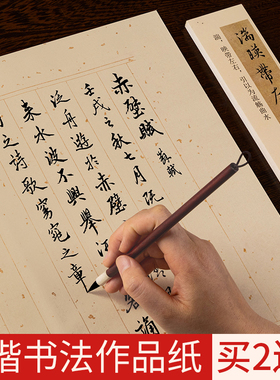 湍暎帶左
湍 暎帶左右 引以為流觴曲水
赤壁賦
蘇軾
壬戌之秋七月既
泛舟遊於赤壁
来水波不興舉
誦
之詩歌窈窕之章
楷书法作品纸
买2送